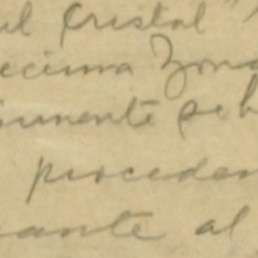 ul Cristal"
ecima Zona
mente
proceden
ante al